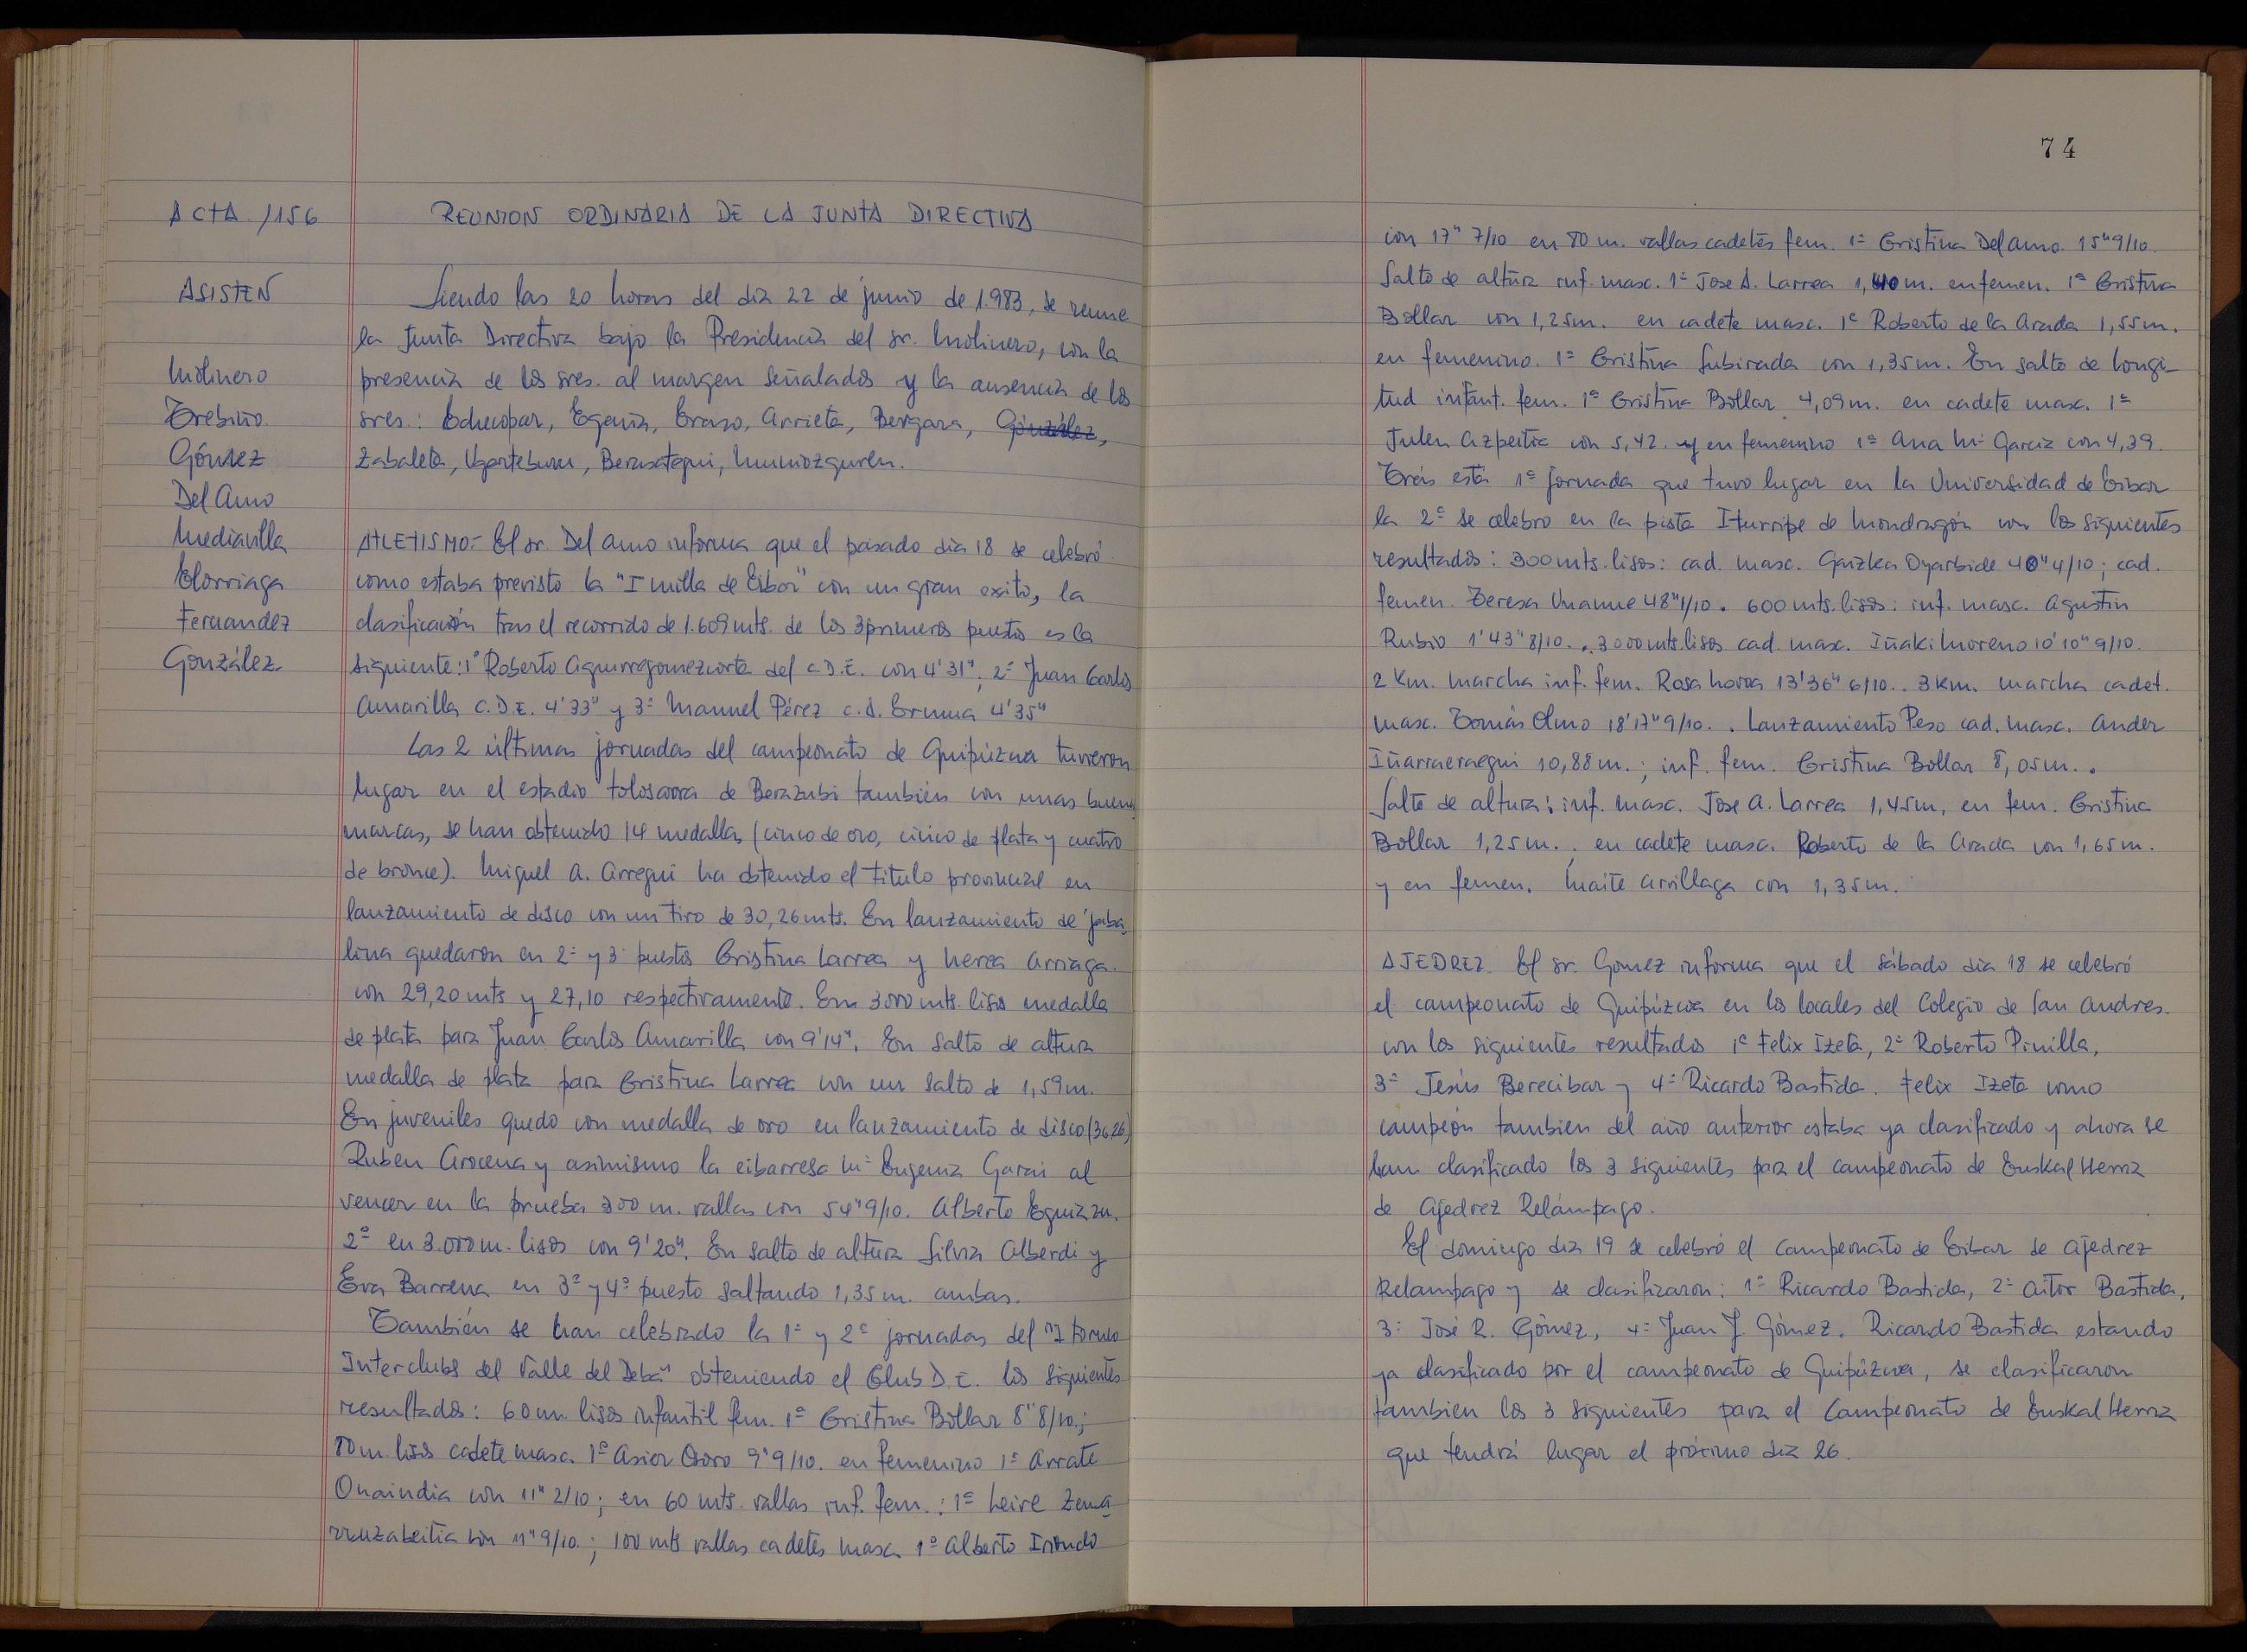 ACTA /156
REUNION ORDINARIA DE LA JUNTA DIRECTIVA
ASISTEN
Molinero
Trebiño
Gómez
Del Amo
Mediavilla
Elorriaga
Fernandez
González
Siendo las 20 horas del dia 22 de junio de 1.983, se reune
la Junta Directiva bajo la Presidencia del sr. Molinero, con la
presencia de los sres. al margen señalados y la ausencia de los
sres.: Echecopar, Egaña, Eraso, Arrieta, Bergara, González,
Zabaleta, Ugarteburu, Berasategui, Muniozguren.
ATLETISMO.- El sr. Del Amo informa que el pasado dia 18 se celebró
como estaba previsto la "I milla de Eibar" con un gran exito, la
clasificación tras el recorrido de 1.609 mts. de los 3 primeros puestos es la
siguiente: 1º Roberto Aguirregomezcorta del C.D.E. con 4'31"; 2º Juan Carlos
Amarilla C.D.E. 4'33" y 3º Manuel Pérez C.A. Ermua 4'35"
Las 2 últimas jornadas del campeonato de Guipúzcoa tuvieron
lugar en el estadio tolosarra de Berazubi también con unas buenas
marcas, se han obtenido 14 medallas (cinco de oro, cinco de plata y cuatro
de bronce). Miguel A. Arregui ha obtenido el titulo provincial en
lanzamiento de disco con un tiro de 30,26 mts. En lanzamiento de jaba
lina quedaron en 2º y 3º puestos Cristina Larrea y Nerea Arriaga
con 29,20 mts y 27,10 respectivamente. En 3000 mts. lisos medalla
de plata para Juan Carlos Amarilla con 9'14". En salto de altura
medalla de plata para Cristina Larrea con un salto de 1,59 m.
En juveniles quedo con medalla de oro en lanzamiento de disco (36,26)
Ruben Arocena y asimismo la eibarresa Mª Eugenia Garai al
vencer en la prueba 300 m. vallas con 54"9/10. Alberto Eguiazu.
2º en 3.000 m. lisos con 9'20". En salto de altura Silvia Alberdi y
Eva Barrena en 3º y 4º puesto saltando 1,35 m. ambas.
También se han celebrado la 1ª y 2ª jornadas del "I torneo
Interclubs del Valle del Deba" obteniendo el Club D.E. los siguientes
resultados: 60 m. lisos infantil fem. 1ª Cristina Bollar 8"8/10.;
80 m. lisos cadete masc. 1º Asier Osoro 9"9/10. en femenino 1ª Arrate
Onaindia con 11" 2/10; en 60 mts. vallas inf. fem.: 1ª Leire Zema
rruzabeitia con 11"9/10.; 100 mts vallas cadetes masc. 1º Alberto Iriondo
74
con 17" 7/10 en 80 m. vallas cadetes fem. 1ª Cristina Del Amo. 15"9/10.
Salto de altura inf. masc. 1º Jose A. Larrea 1,40 m. en femen. 1ª Cristina
Bollar con 1,25 m. en cadete masc. 1º Roberto de la Arada 1,55 m.
en femenino. 1ª Cristina Subirada con 1,35 m. En salto de longi-
tud infant. fem. 1ª Cristina Bollar 4,09 m. en cadete masc. 1º
Julen Azpeitia con 5,42. y en femenino 1ª Ana Mª Garcia con 4,39.
Trás esta 1ª jornada que tuvo lugar en la Universidad de Eibar
la 2ª se celebro en la pista Iturripe de Mondragón con los siguientes
resultados: 300 mts. lisos: cad. masc. Gaizka Oyarbide 40"4/10; cad.
femen. Teresa Unanue 48"1/10. 600 mts. lisos: inf. masc. Agustin
Rubio 1'43"8/10.. 3000 mts. lisos cad. masc. Iñaki Moreno 10'10"9/10.
2 Km. marcha inf. fem. Rosa 13'36"6/10.. 3 Km. marcha cadet.
masc. Tomás Olmo 18'17"9/10. . Lanzamiento Peso cad. masc. Ander
Iñarraeraegui 10,88 m.; inf. fem. Cristina Bollar 8,05 m..
Salto de altura: inf. masc. Jose A. Larrea 1,45 m, en fem. Cristina
Bollar 1,25 m.. en cadete masc. Roberto de la Arada con 1,65 m.
y en femen. Maite Arrillaga con 1,35 m.
AJEDREZ. El sr. Gomez informa que el sábado dia 18 se celebró
el campeonato de Guipúzcoa en los locales del Colegio de San Andres.
con los siguientes resultados 1º Felix Izeta, 2º Roberto Pinilla,
3º Jesús Berecibar y 4º Ricardo Bastida. Felix Izeta como
campeón tambien del año anterior estaba ya clasificado y ahora se
han clasificado los 3 siguientes para el campeonato de Euskal Herria
de Ajedrez Relámpago.
El domingo dia 19 se celebró el Campeonato de Eibar de Ajedrez
Relampago y se clasificaron: 1º Ricardo Bastida, 2º Aitor Bastida,
3º José R. Gómez, 4º Juan J. Gómez. Ricardo Bastida estando
ya clasificado por el campeonato de Guipúzcoa, se clasificaron
tambien los 3 siguientes para el Campeonato de Euskal Herria
que tendrá lugar el próximo dia 26.